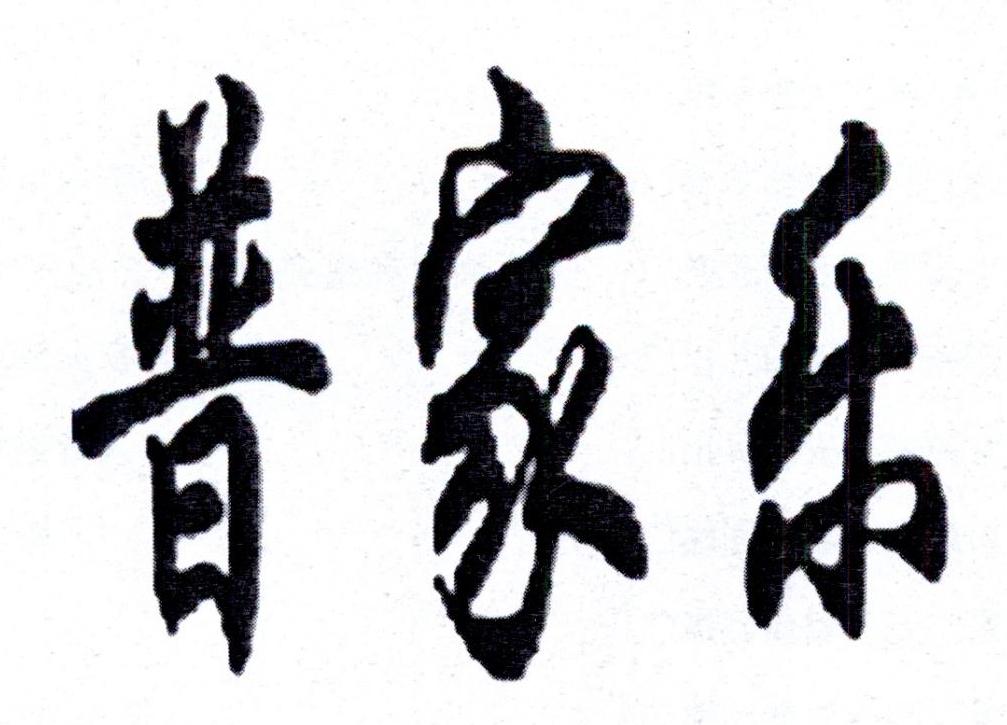 普家乐